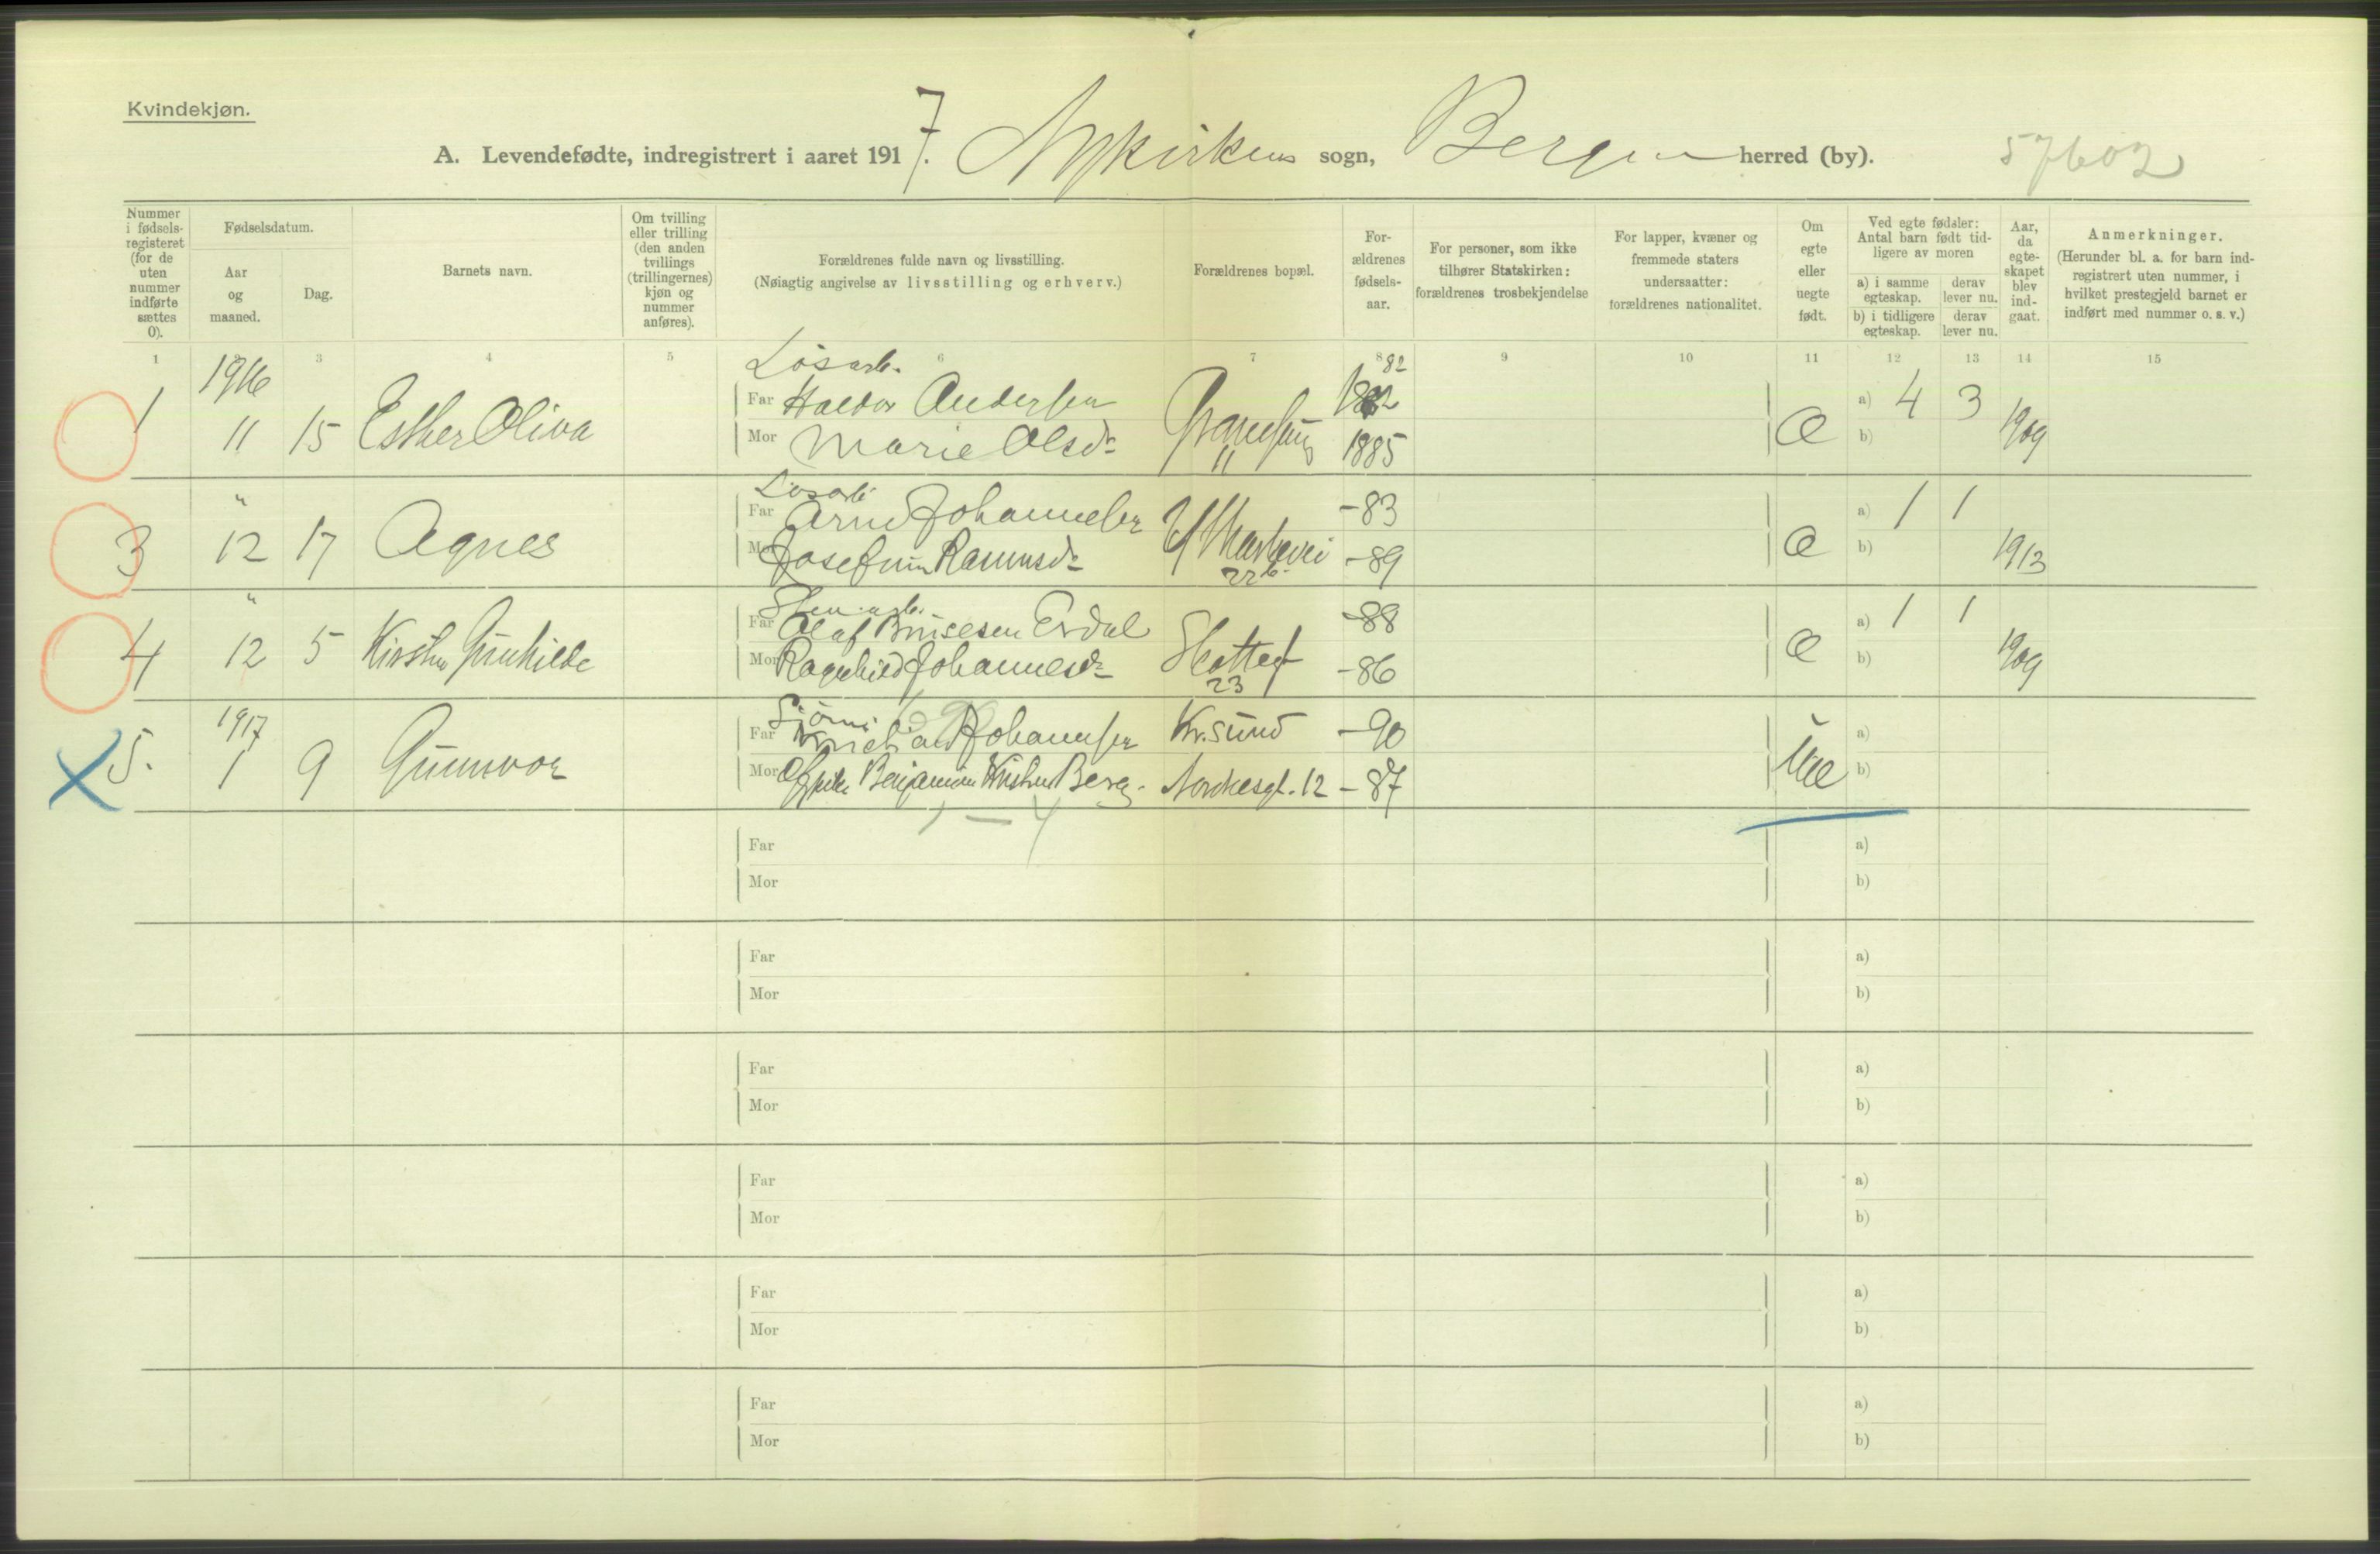 Kvindekjøn.
A. Levendefødte, indregistrert i aaret 1917. Nykirkens sogn, Bergen herred (by). 57602
Nummer i fødselsregisteret (for de uten nummer indførte sættes 0).
Fødselsdatum.
Aar og maaned.
Dag.
Barnets navn.
Om tvilling eller trilling (den anden tvillings (trillingernes) kjøn og nummer anføres).
Forældrenes fulde navn og livsstilling.
(Nøiagtig angivelse av livsstilling og erhverv.)
Forældrenes bopæl.
Forældrenes fødselsaar.
For personer, som ikke tilhører Statskirken: forældrenes trosbekjendelse
For lapper, kvæner og fremmede staters undersaatter: forældrenes nationalitet.
Om egte eller uegte født.
Ved egte fødsler: Antal barn født tidligere av moren
a) i samme egteskap.
derav lever nu.
b) i tidligere egteskap.
derav lever nu.
Aar, da egteskapet blev indgaat.
Anmerkninger.
(Herunder bl. a. for barn indregistrert uten nummer, i hvilket prestegjeld barnet er indført med nummer o. s. v.)
1 3 4 5 6 7 8 9 10 11 12 13 14 15
1 1916 11 15 Esther Oliva
Løsarb.
Far Haldor Andersen 82
Mor Marie Olsdr 11 1885
a) 4 3 1909
b)
3 " 12 17 Agnes
Løsarb
Far Arne Johannesen -83
Mor Josefine Rasmusdr 22b -89
a) 1 1 1913
b)
4 " 12 5 Kirsten Gunhilde
Far Olaf Erdal -88
Mor Ragnhild Johannesdr 23 -86
a) 1 1 1909
b)
5. 1917 1 9 Gunnvor
Far Johannesen Kr.sund -90
Mor Berg. Nordnesgt. 12 -87
a)
b)
1 - 4
Far a)
Mor b)
Far a)
Mor b)
Far a)
Mor b)
Far a)
Mor b)
Far a)
Mor b)
Far a)
Mor b)